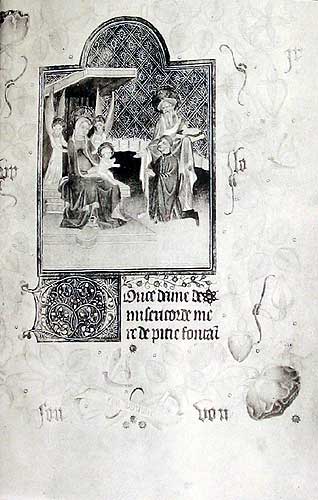 Douce dame de
misericorde me
re de pitie fontai
von